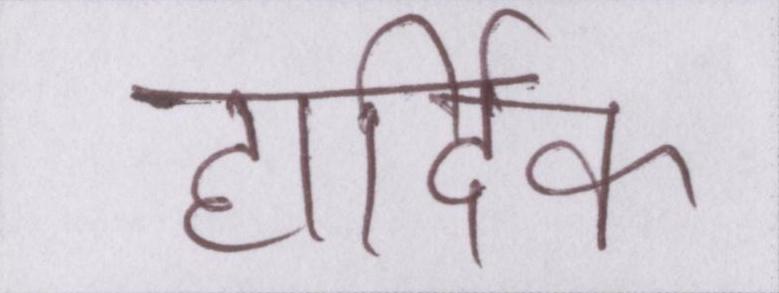 हार्दिक